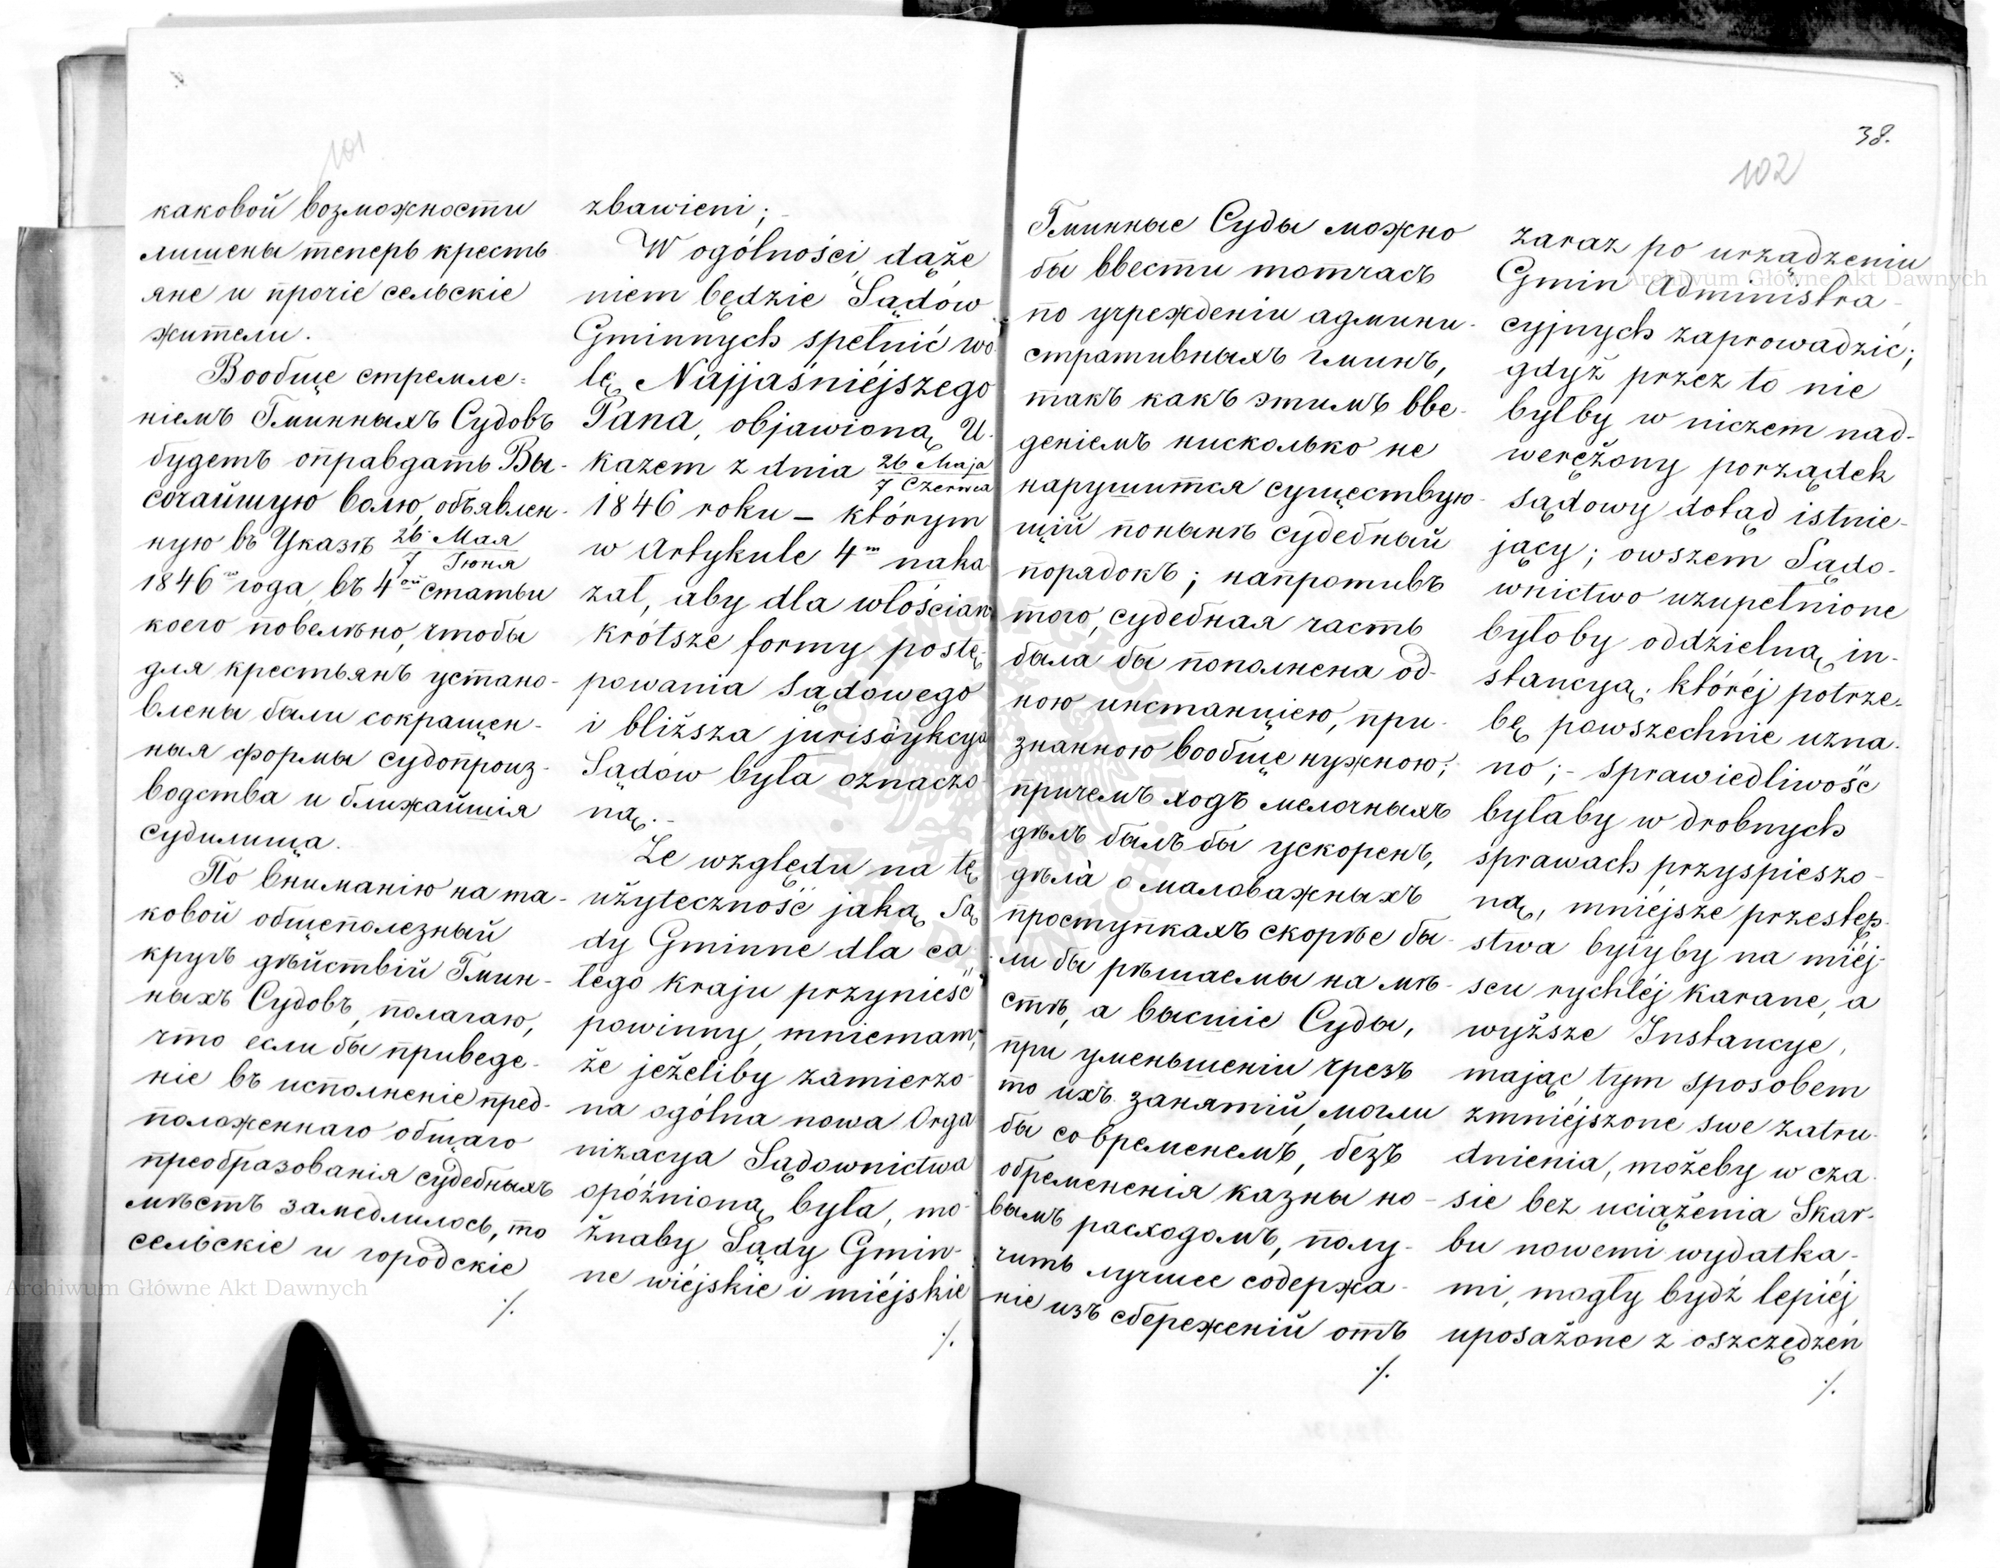 101
каковой возможности
лишены теперь кресть
яне и прочіе сельскіе
жители.
Вообще стремле=
ніемъ Гминныхъ Судовъ
будетъ оправдать Вы-
сочайшую волю, объявлен-
ную въ Указѣ 26 Мая
7 Іюня
1846 года, въ 4ой статьи
коего повелѣно, чтобы
для крестьянъ устано-
влены были сокращен-
ныя формы судопроиз-
водства и ближайшія
судилища.
По вниманію на та-
ковой общеполезный
кругъ дѣйствій Гмин-
ныхъ Судовъ, полагаю,
что если бы приведе-
ніе въ исполненіе пред-
положеннаго общаго
преобразованія судебныхъ
мѣстъ замедлилось, то
сельскіе и городскіе
./.
zbawieni;
W ogólności, dąże
niem będzie Sądów
Gminnych spełnić wo
lę Najjaśniéjszego
Pana, objawioną U-
kazem z dnia 26 Maja
7 Czerwca
1846 roku – którym
w Artykule 4m naka
zał, aby dla włościan
krótsze formy postę-
powania sądowego
i bliższa jurisdykcya
Sądów była oznaczo
ną.-
Ze względu na tę
użyteczność jaką Są
dy Gminne dla ca
łego kraju przynieść
powinny, mniemam,
że jeżeliby zamierzo
na ogólna nowa Orga
nizacya Sądownictwa
opóźnioną była, mo
żnaby Sądy Gmin-
ne wiéjskie i miéjskie
./.
38.
102
Гминные Суды можно
бы ввести тотчасъ
по учрежденіи админи-
стративныхъ гминъ,
такъ какъ этимъ вве-
деніемъ нисколько не
нарушится существую-
щій понынѣ судебный
порядокъ; напротивъ
того, судебная часть
была бы пополнена од-
ною инстанціею, при-
знанною вообще нужною;
причемъ ходъ мелочныхъ
дѣлъ былъ бы ускоренъ,
дѣла о маловажныхъ
проступкахъ скорѣе бы-
ли бы рѣшаемы на мѣ-
стѣ, а высшіе Суды,
при уменьшеніи чрезъ
то ихъ занятій, могли
бы со временемъ, безъ
обремененія казны но-
вымъ расходомъ, полу-
чить лучшее содержа-
ніе изъ сбереженій отъ
./.
zaraz po urządzeniu
Gmin Administra-
cyjnych zaprowadzić;
gdyż przez to nie
byłby w niczem nad-
werężony porządek
sądowy dotąd istnie-
jący; owszem Sądo-
wnictwo uzupełnione
byłoby oddzielną in-
stancyą, któréj potrze-
bę powszechnie uzna-
no;- sprawiedliwość
byłaby w drobnych
sprawach przyspieszo-
ną, mniéjsze przestęp-
stwa byłyby na miéj-
scu rychléj karane, a
wyższe Instancye,
mając tym sposobem
zmniéjszone swe zatru-
dnienia, możeby w cza-
sie bez uciążenia Skar-
bu nowemi wydatka-
mi, mogły bydź lepiéj
uposażone z oszczędzeń
./.
Archiwum Główne Akt Dawnych
Archiwum Główne Akt Dawnych